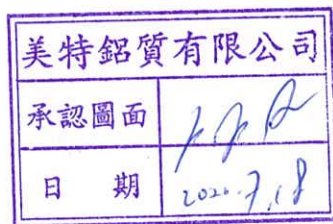 美特鋁質有限公司
承認圖面
日 期 2020.7.18